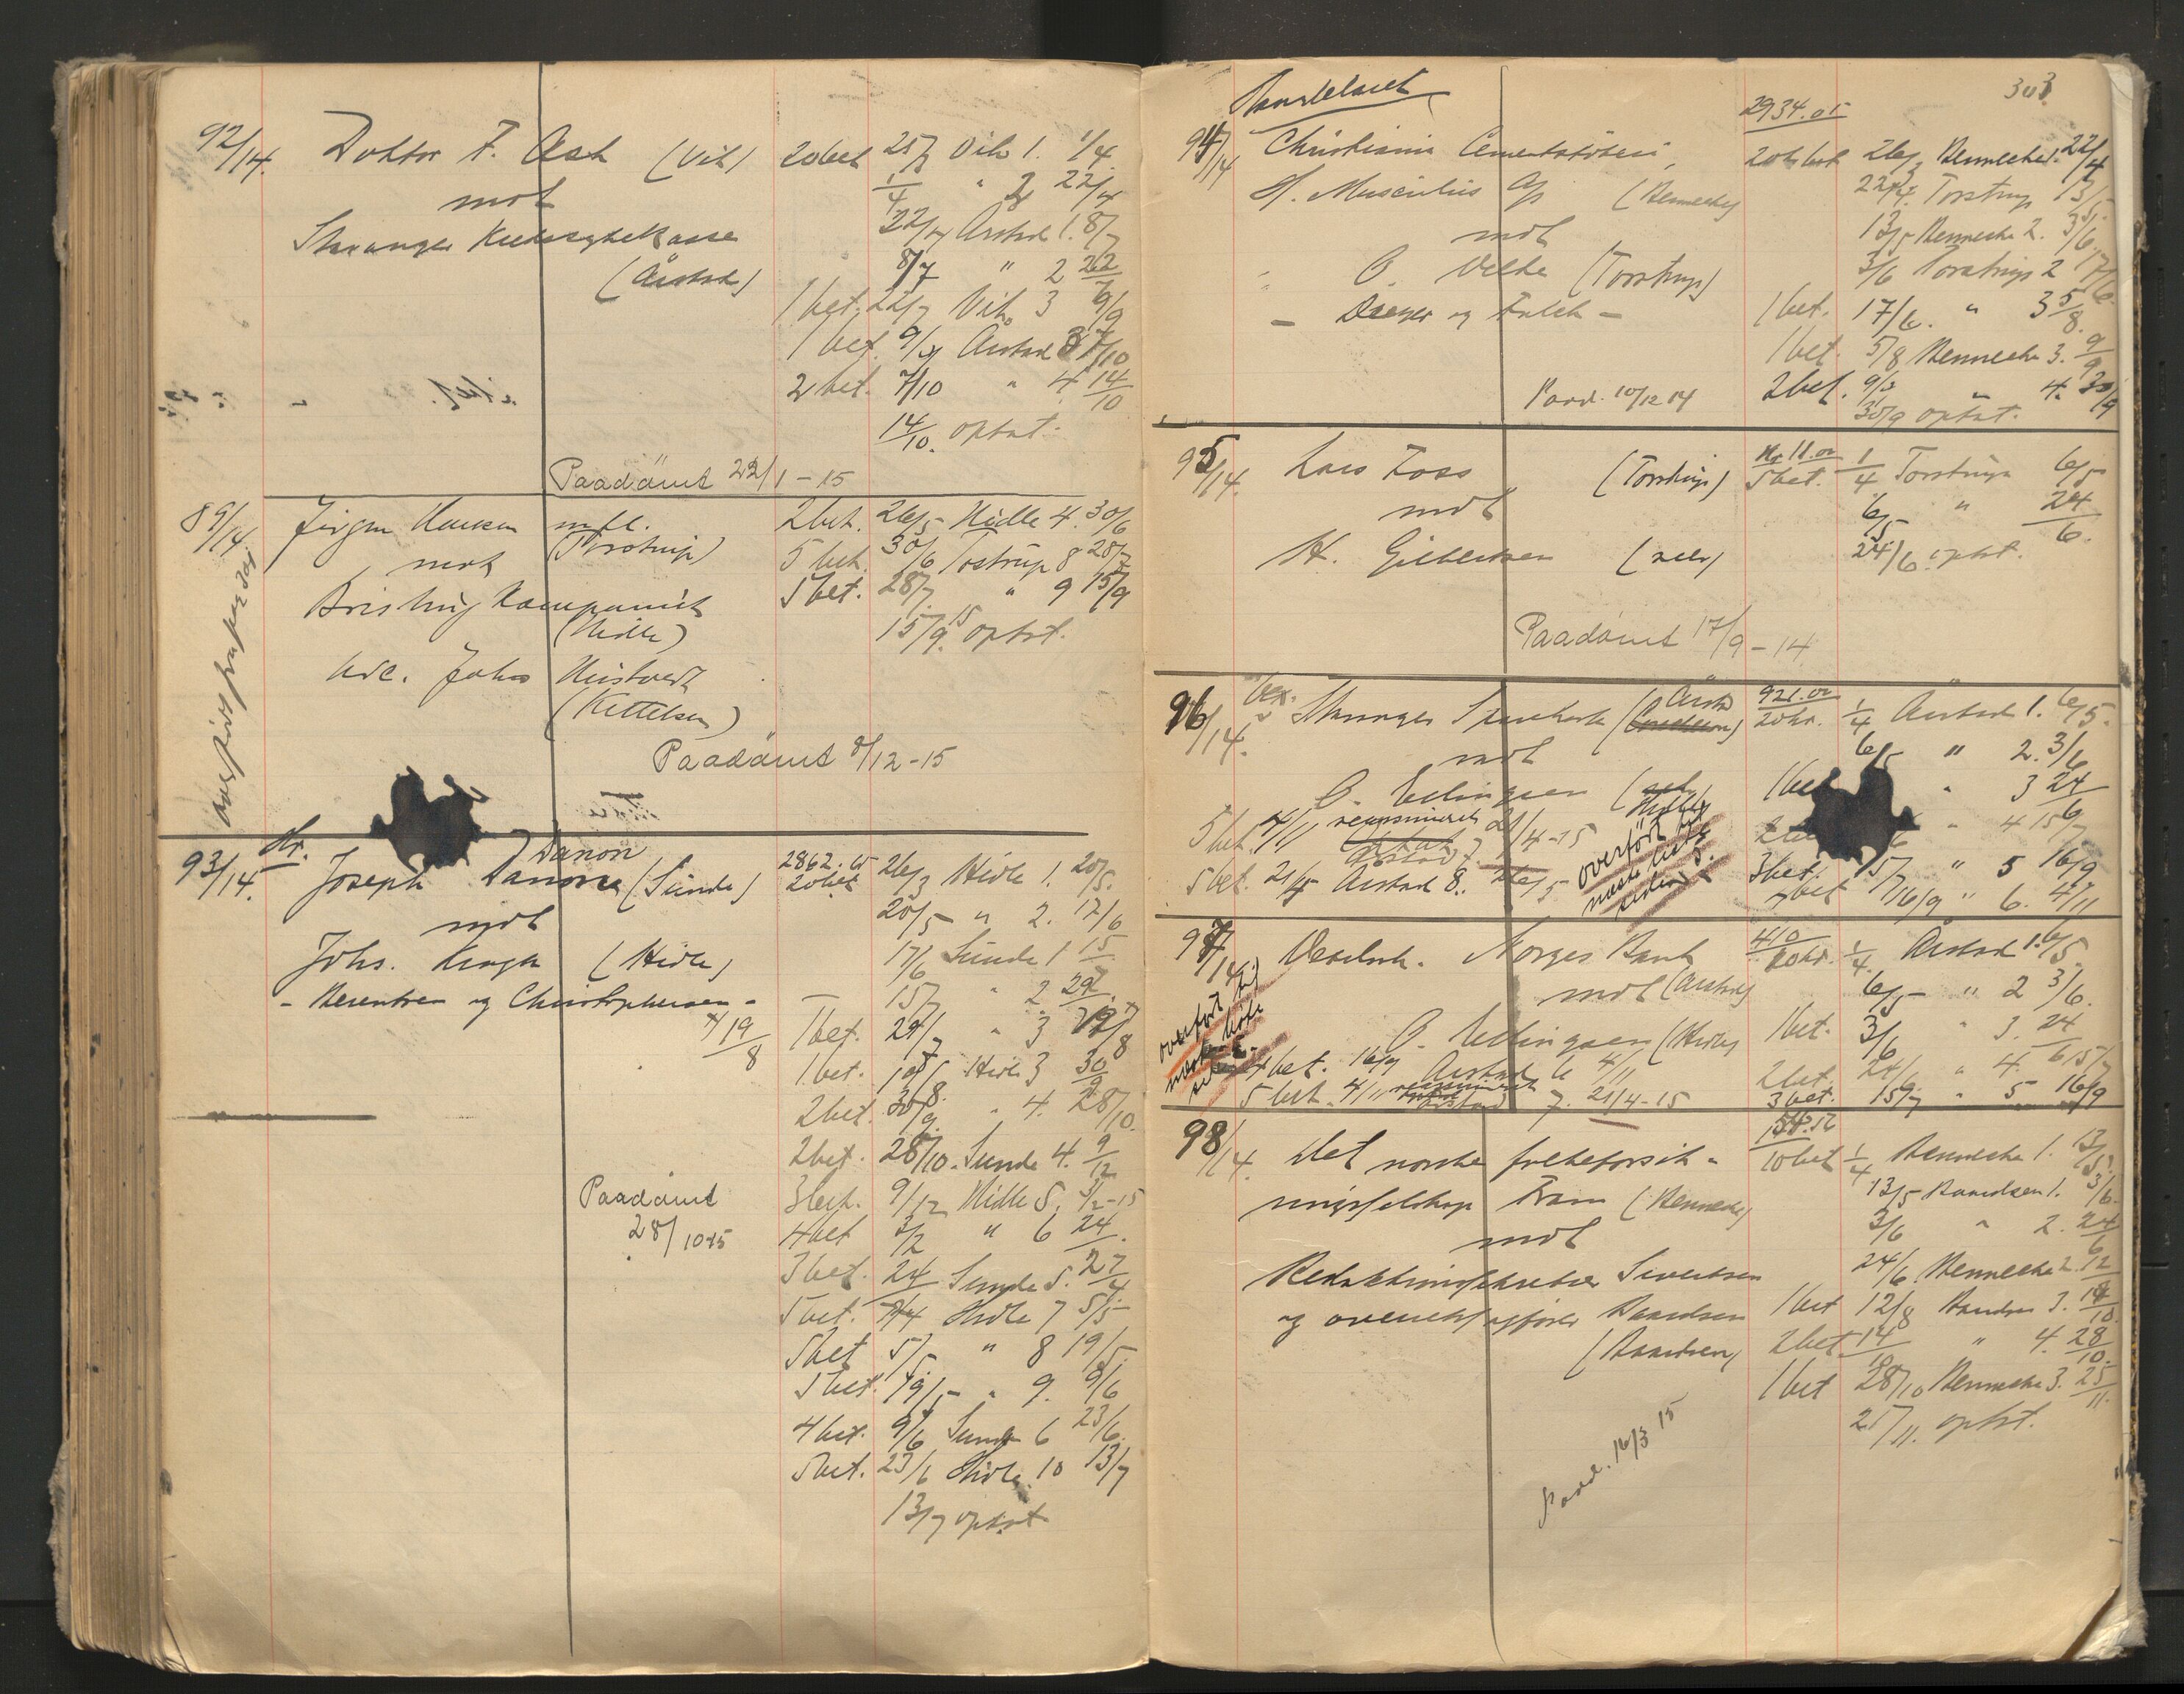 92/14. Doktor F. Ask (Vik) 20 bet 25/3 Vik 1. 1/4
mot 1/4 " 2 22/4
Stavanger Kredssykekasse 22/4 Aarstad 1. 8/7
(Aarstad) 8/7 " 2 22/7
1 bet. 22/7 Vik 3 9/9
1 bet. 9/9 Aarstad 3 7/10
2 bet. 7/10 " 4 14/10
14/10. optat.
Paadømt 22/1 - 15
89/14 Jørgen Hansen m.fl. 2 bet. 26/5 Hidle 4. 30/6
mot (Torstrup) 5 bet. 30/6 Tostrup 8 28/7
Brisling Kompaniet 5 bet. 28/7 " 9 15/9
(Hidle) 15/9 15 optat.
adc. Johs
(Kittelsen)
Paadømt 8/12 - 15
93/14. Hr. Joseph Danon (Sunde) 2862. 20 bet 26/3 Hidle 1. 20/5.
mot 20/5 - " 2. 17/6
Johs. Krogh (Hidle) 17/6 Sunde 1 15
- Berentsen og Christophersen - 15/7 " 2 29/7
19/8 1 bet. 29/7 " 3 19/8
1 bet. 19/8 Hidle 3 30/9
2 bet. 30/9 " 4. 28/10.
2 bet. 28/10. Sunde 4. 9/12
Paadømt 3 bet. 9/12 Hidle 5. 3/2 - 15
28/10 15 4 bet 3/2 " 6 24
3 bet. 24 Sunde 5. 27/4
5 bet. 27/4 Hidle 7 5/5
5 bet 5/5 " 8 19/5
5 bet. 19/5 - " 9. 9/6
4 bet. 9/6 Sunde 6 23/6
5 bet. 23/6 Hidle 10 13/7
13/7 optat
303
2934.05
94/14 Christiania Cementstøberi, 20 bet 26/3 Benneche 1. 22/4
H. Musculus A/s (Benneche) 22/4. Torstrup 13/5
mot 13/5 Benneche 2. 3/6.
O. Velde (Torstrup) 3/6 Torstrup 2 17/6.
- Dreyer og Falck - 1 bet. 17/6. " 3 5/8.
1 bet. 5/8 Benneche 3. 9/9
Paad. 10/12 14 2 bet. 9/9 " 4. 30/9
30/9 optat.
95/14. Lars Foss (Torstrup) Kr 11.00 5 bet. 1/4 Torstrup 6/5
mot 6/5 " 24/6.
H. Gilbertsen (selv) 24/6. optat.
Paadømt 17/9 - 14
96/14. Stavanger Sparekasse (Aarsta 921.00 20 kr. 1/4 Aarstad 1. 6/5.
mot 6/5 " 2. 3/6
O. Erlingsen (Hidle) 1 bet " 3 24/6
5 bet. 4/11 reassumeret 21/4 - 15 " 4 15/7
Aarstad 7.
5 bet. 21/4 Aarstad 8. 26/5 3 bet. 15/7 " 5 16/9
overført til næste hefte 7 bet 16/9 " 6. 4/11
97/14 Norges Bank 410 20 kr. 1/4 Aarstad 1. 6/5.
mot (Aarstad) 6/5 - " 2 3/6.
O. Erlingsen (Hidle) 1 bet. 3/6 " 3. 24/6
overført til næste hefte 4 bet. 16/9 Aarstad 6 4/11 2 bet. 24/6 " 4. 15/7
5 bet. 4/11 reassumeret Aarstad 7. 21/4 - 15 3 bet. 15/7 " 5. 16/9
98/14. Det norske folkeforsik- 10 bet 1/4 Benneche 1. 13/5.
ringsselskap Fram (Benneche) 13/5 Baardsen 1. 3/6.
mot 3/6 " 2. 24/6
Redaktionssekretær Sivertsen 24/6 Benneche 2. 12/8
og overretssagfører Baardsen 1 bet 12/8 Baardsen 3. 14/10.
(Baardsen) 2 bet 14/10 " 4. 28/10.
1 bet 28/10 Benneche 3. 25/11.
Paad. 16/3 15 25/11. optat.